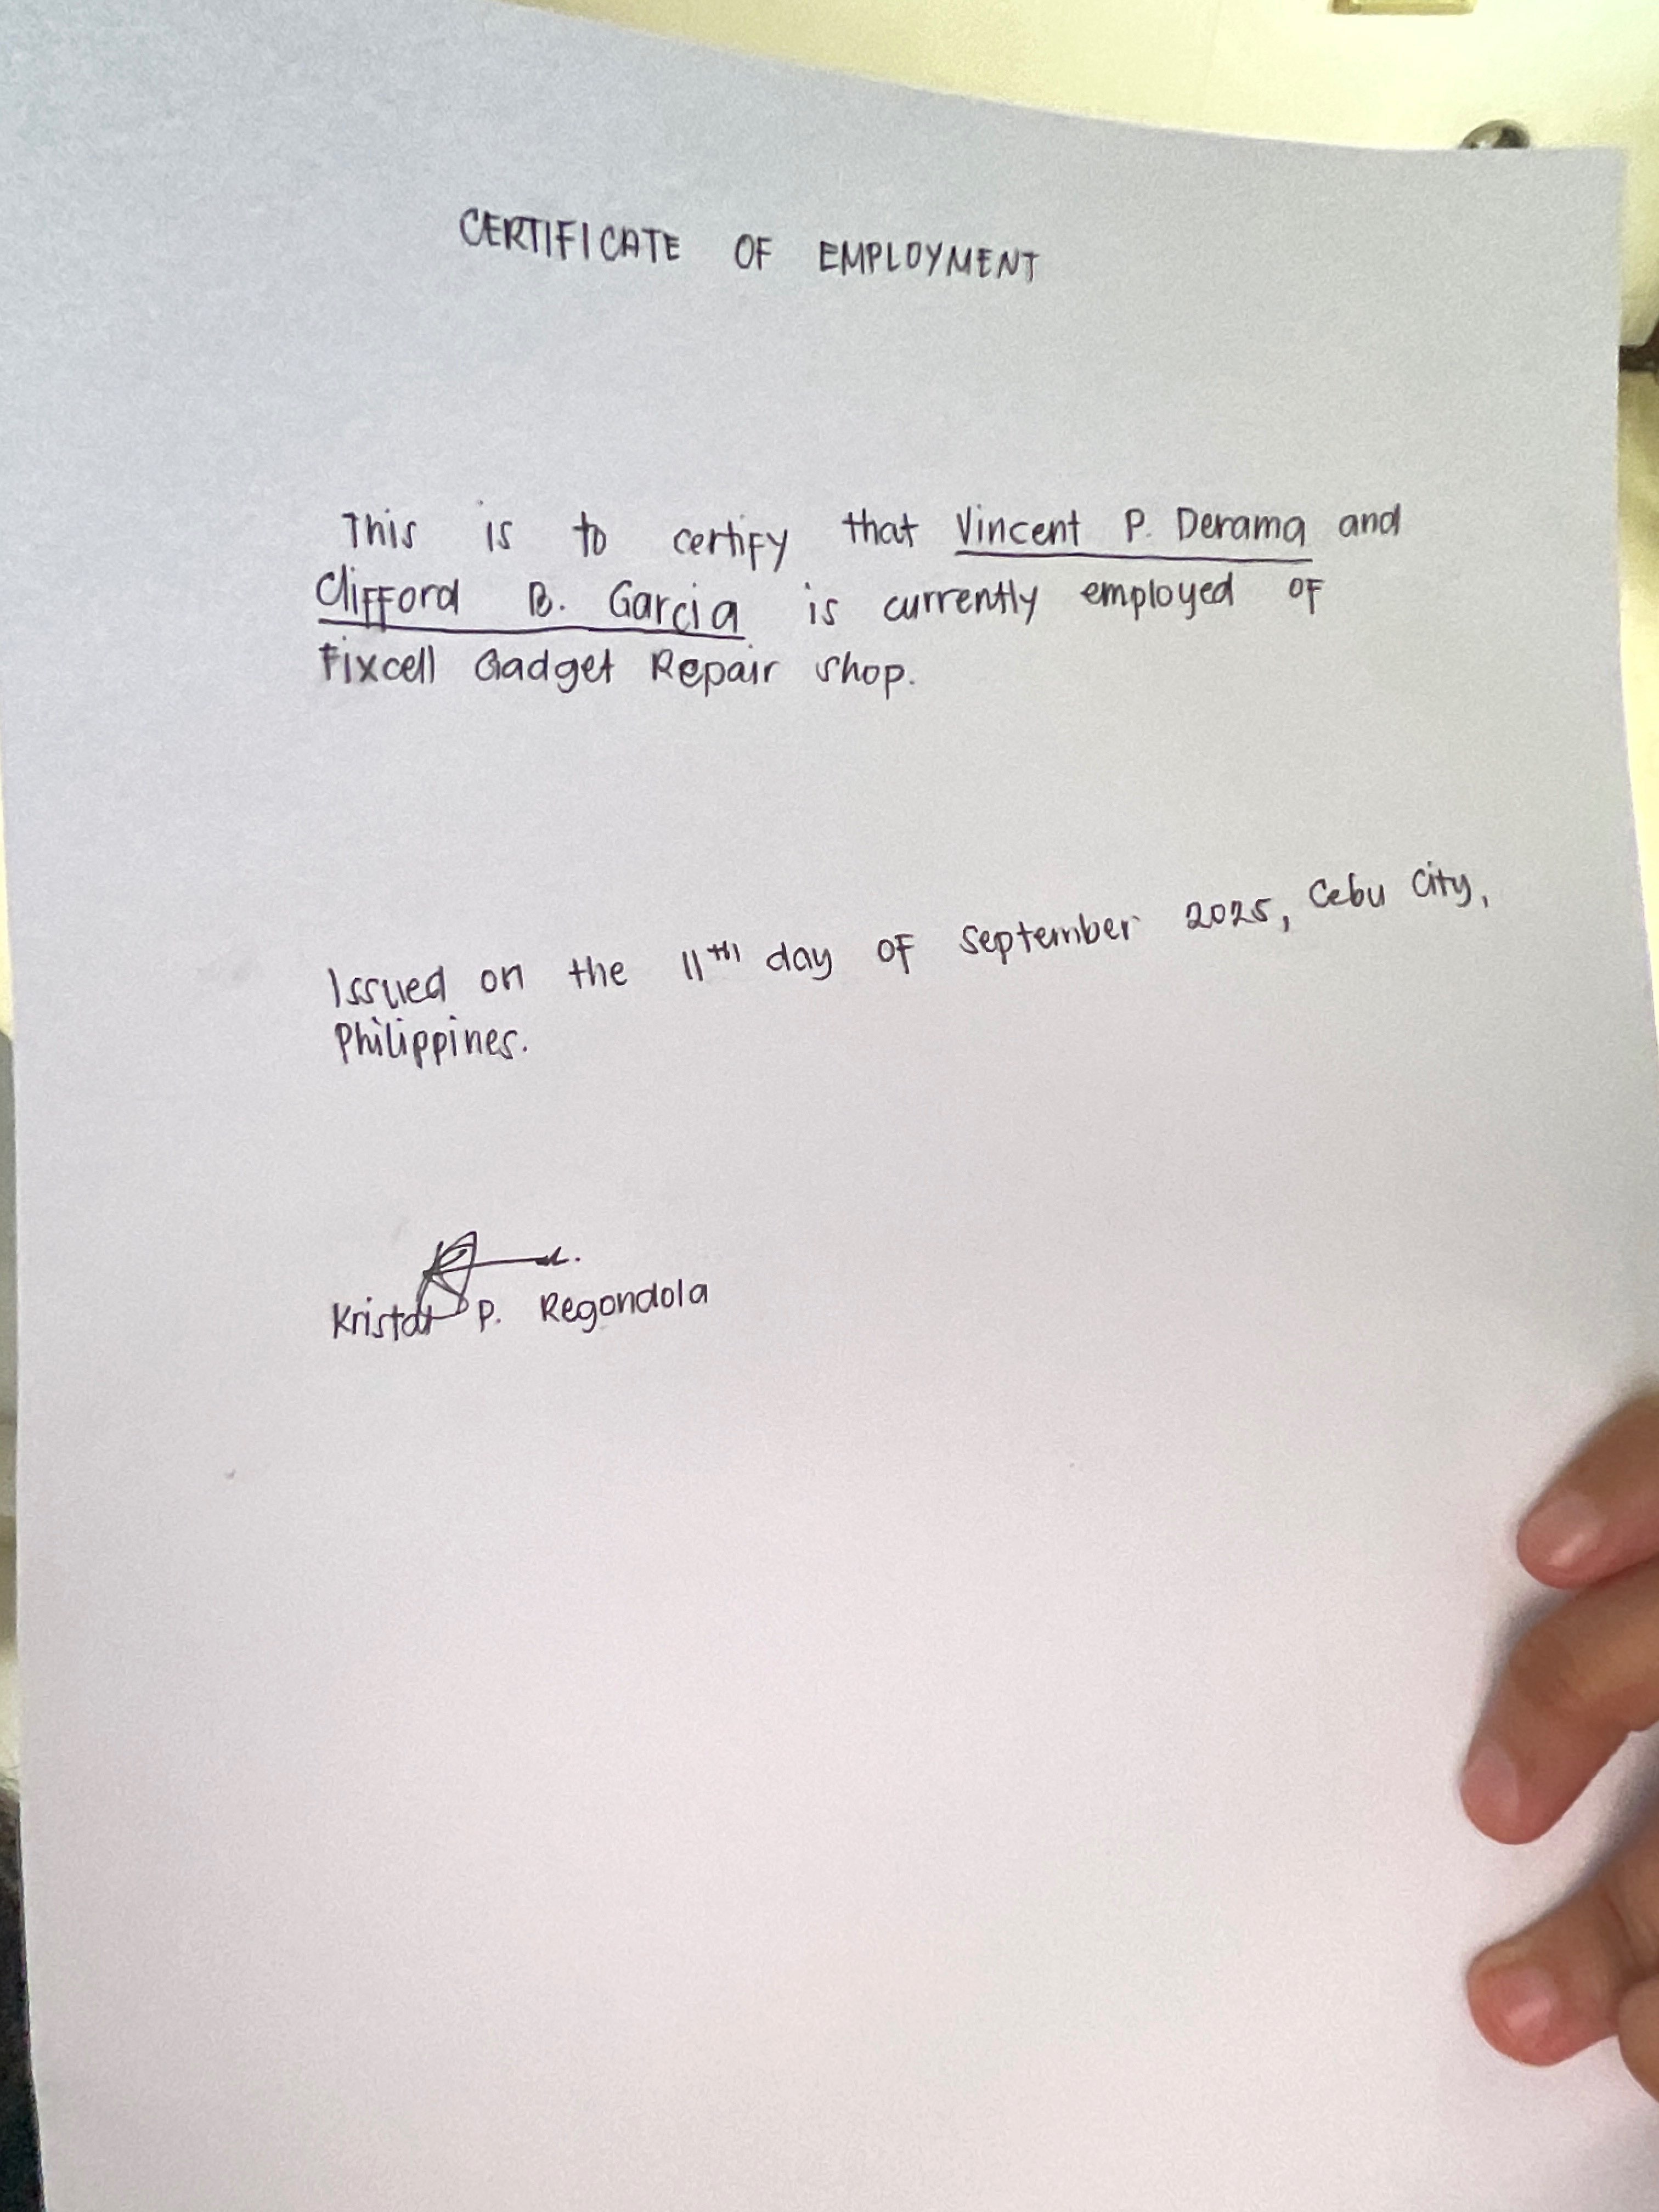 CERTIFICATE OF EMPLOYMENT
This is to certify that Vincent P. Derama and
Clifford B. Garcia is currently employed of
Fixcell Gadget Repair shop.
Issued on the 11th day of September 2025, Cebu City,
Philippines.
P. Regondola